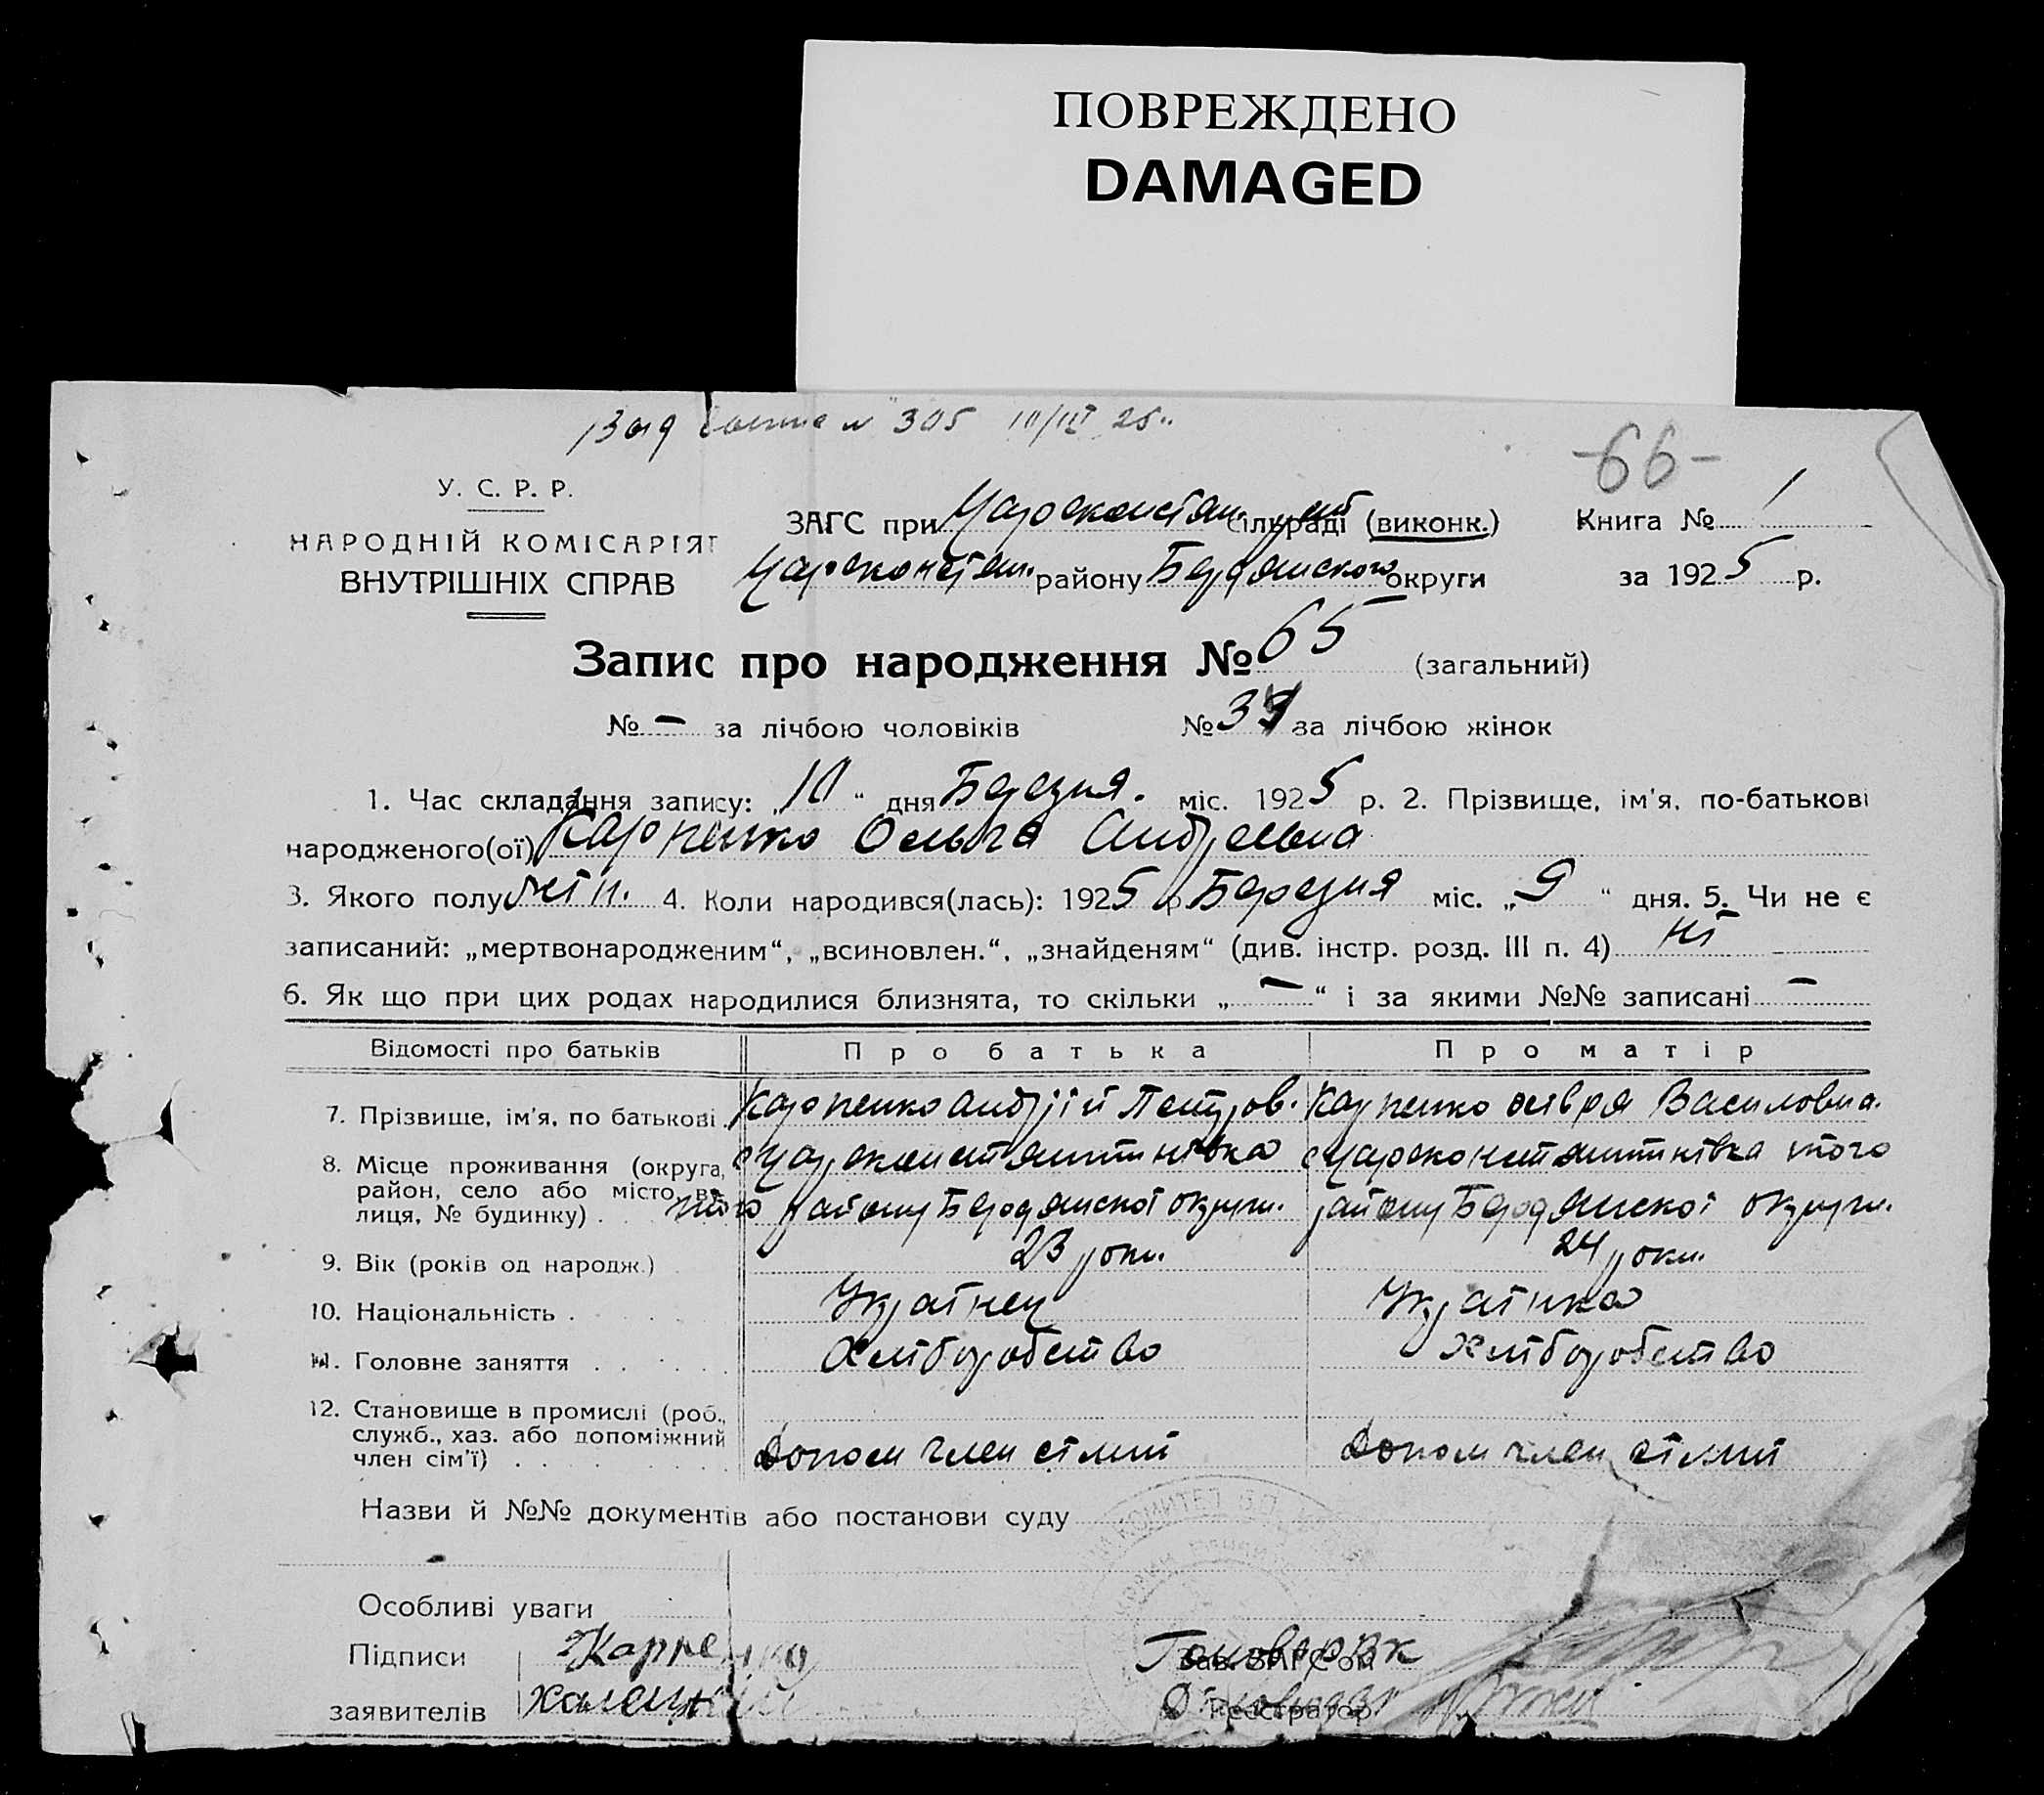 ПОВРЕЖДЕНО
DAMAGED
№ 305 10/III 25
-66-
У. С. Р. Р.
НАРОДНІЙ КОМІСАРІЯТ
ВНУТРІШНІХ СПРАВ
ЗАГС при Цареконстян. сільраді (виконк.) Книга № 1
Цареконстян. району Бердянского округи за 1925 р.
Запис про народження № 65 (загальний)
№ – за лічбою чоловіків № за лічбою жінок
1. Час складання запису: „10“ дня Березня. міс. 1925 р. 2. Прізвище, ім'я, по-батькові
народженого(ої) Карпенко Ольга Андреевна
3. Якого полу жін. 4. Коли народився(лась): 1925 р. Березня міс. „9“ дня. 5. Чи не є
записаний: „мертвонародженим“, „всиновлен.“, „знайденям“ (див. інстр. розд. III п. 4) ні
6. Як що при цих родах народилися близнята, то скільки „–“ і за якими №№ записані –
Відомості про батьків Про батька Про матір
7. Прізвище, ім'я, по батькові. Карпенко Андрій Петров. Карпенко Василовна.
8. Місце проживання (округа, район, село або місто, вулиця, № будинку) . с Цареконстянтинівка с Цареконстянтинівка того
того району Бердянскої округи. району Бердянскої округи.
9. Вік (років од народж.) 23 роки. 24 роки.
10. Національність . Українец Українка
11. Головне заняття . . . Хліборобство Хліборобство
12. Становище в промислі (роб., служб., хаз. або допоміжний член сім'ї) . . . Допом член сімїи Допом член сімїи
Назви й №№ документів або постанови суду
–
Особливі уваги
Підписи Карпенко Зав. ЗАГС'ом
заявителів Реєстратор